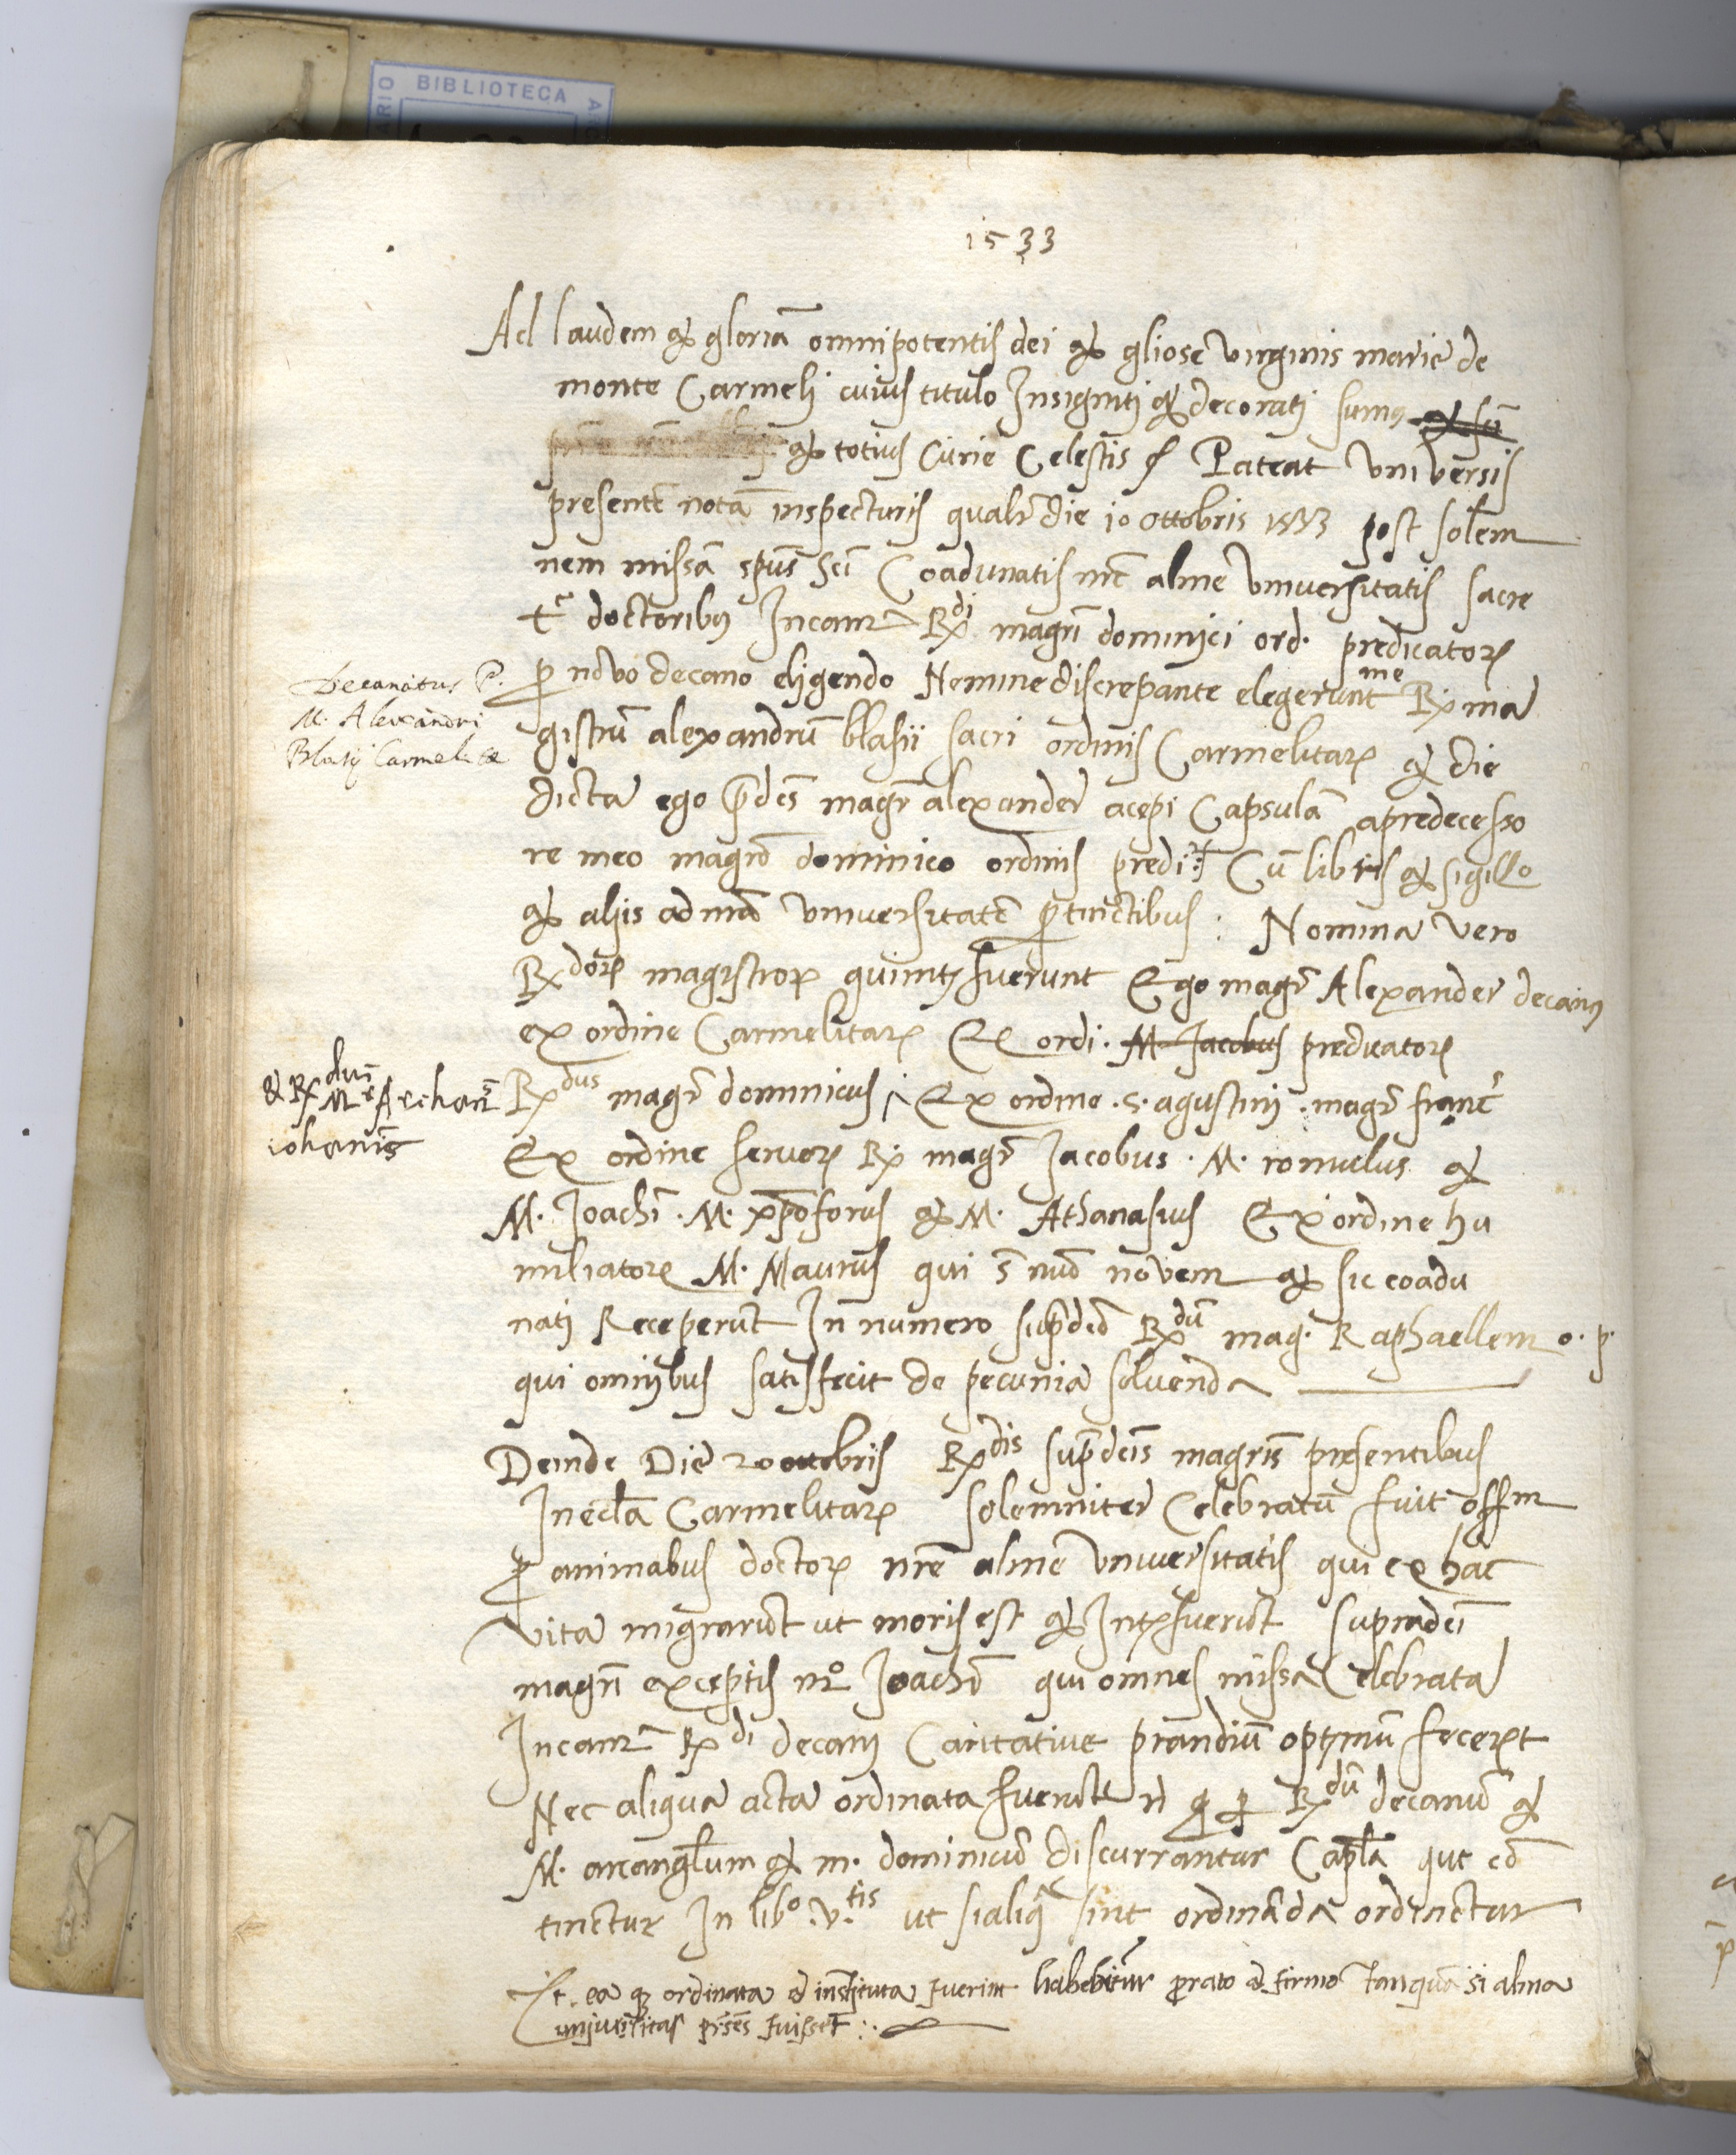 BIBLIOTECA
1533
Ad laudem & gloriã omnipotentis dei & gliose virginis marie de
monte Carmeli cuius titulo Insigniti & decorati sumus
& totius Curie Celestis Pateat Universis
presentẽ notã inspecturis qualr die 10 ottobris 1533 post solem
nem missã spũs sci Coadunatis nrẽ alme universitatis sacre
doctoribus Incamr Rdi magri dominici ord. predicatorum
p novo decano eligendo Nemine discrepante elegerunt me Rx ma
Decanatus P.
M. Alexandri
Blasij Carmelitae
gistrũ alexandrũ blasii sacri ordinis Carmelitarum & die
dicta ego pdcs magr alexander acepi Capsulã apredecesso
re meo magrõ dominico ordinis predi Cũ libris & sigillo
& alijs ad nrã universitatẽ ptinẽtibus : Nomina vero
Rxdorum magistrorum qui intfuerunt Ego magr Alexander decanus
ex ordine Carmelitarum Ex ordi. M. Jacobus predicatorum
& Rx dus Mr Archan
iohanis
Rxdus magr dominicus Ex ordine .S. agustini . magr franc
Ex ordine servorum Rx magr Jacobus . M. romulus &
M. Joachĩ . M. xpoforus & M. Athanasius Ex ordine hu
miliatorum M. Maurus qui ĩ nuõ novem & sic coadu
nati Receperũt In numero supdcõ Rxdũ mag. Raphaellem o. p.
qui omnibus satisfecit de pecunia solvenda
Deinde Die 20 ottobris Rxdis supdcis magris presentibus
In ecla Carmelitarum solemniter Celebratũ fuit offm
p animabus doctorum nrẽ alme universitatis qui ex hac
vita migrarũt ut moris est & Intfuerũt supradci
magri exceptis mo Joachĩ qui omnes missa Celebrata
Incamr Rxdi decani Caritative prandiũ optimũ fecerũt
Nec aliqua acta ordinata fuerũt n q p Rxdũ decanũ &
M. arcanglum & m. dominicũ discurrantur Capla que cõ
tinẽtur In libo .V.tis ut si aliqa sint ordinãda ordinẽtur
Et ea q ordinata & instituta fuerint habebũtur prato & firmo tanquã si alma
universitas prsẽs fuisset :.